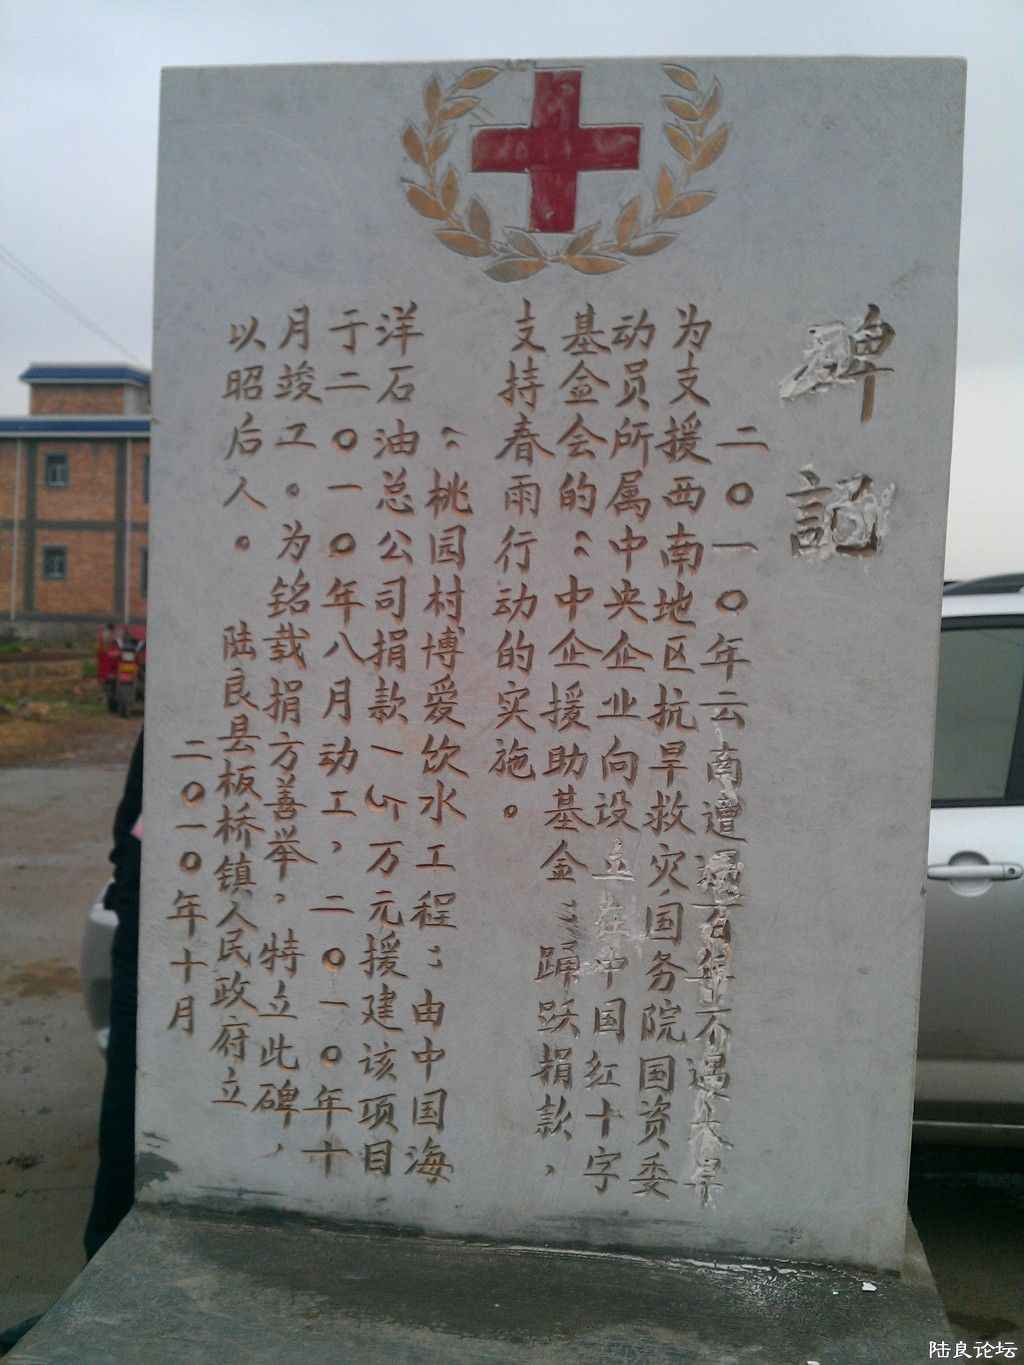 碑記
二〇一〇年云南遭遇百年不遇大旱
为支援西南地区抗旱救灾,国务院国资委
动员所属中央企业向设立在中国红十字
基金会的“中企援助基金”踊跃捐款,
支持春雨行动的实施。
“桃园村博爱饮水工程”由中国海
洋石油总公司捐款万元援建该项目
于二〇一〇年八月动工,二〇一〇年十
月竣工。为铭载捐方善举,特立此碑,
以昭后人。 陆良县板桥镇人民政府立
二〇一〇年十月
陆良论坛